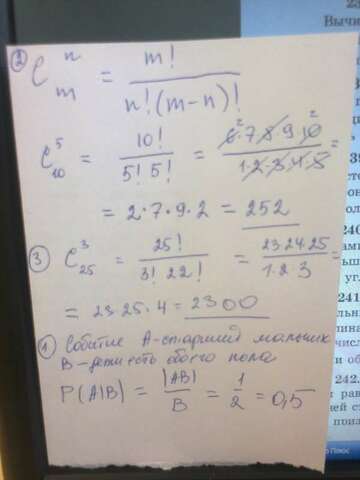 ② C_m^n = m! / n!(m-n)!
C_10^5 = 10! / 5! 5! = 6·7·8·9·10 / 1·2·3·4·5 =
= 2·7·9·2 = 252
③ C_25^3 = 25! / 3! 22! = 23·24·25 / 1·2·3 =
= 23·25·4 = 2300
① Событие А-старший мальчик
В-дети есть обоего пола
P(A|B) = |AB| / B = 1/2 = 0,5
Вычи
39
240
241
242.